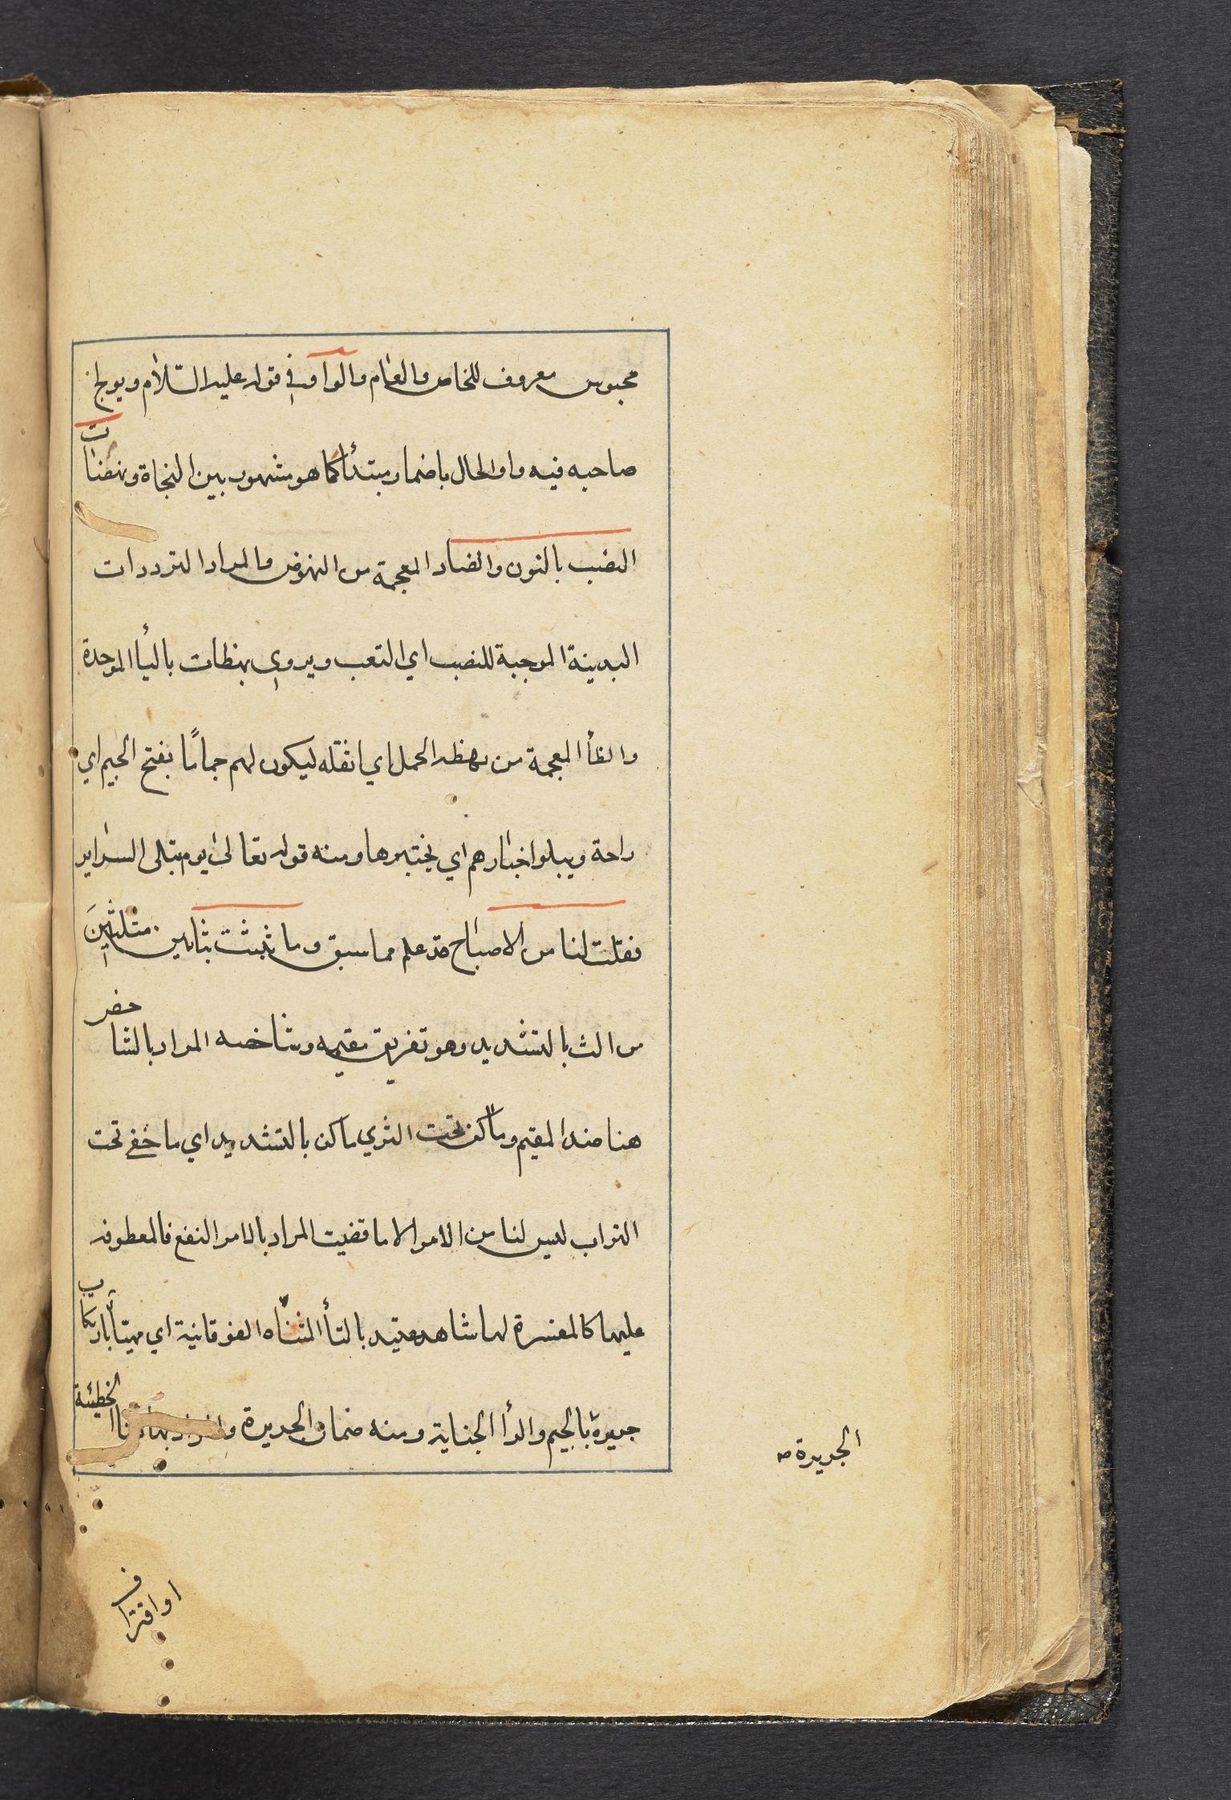 محبوس معروف للخاص والعام والواو في قوله عليه السلام ويولج
صاحبه فيه واو الحال باضمار مبتدأ كما هو مشهور بين النحاة ونهضات
النصب بالنون والضاد المعجمة من النهوض والمراد الترددات
البدنية الموجبة للنصب اي التعب ويروى بهظات بالبأ الموحدة
والظأ المعجمة من بهظه الحمل اي اثقله ليكون لهم جماما بفتح الجيم اي
راحة ويبلو اخبارهم اي يختبرها ومنه قوله تعالى يوم تبلى السراير
فقلت لنا من الاصباح قد علم مما سبق وما بثثت بثايين مثلثين
من البث بالتشديد وهو تفريق مقيمه وشاخصه المراد بالشاخص
هنا ضد المقيم وما كن تحت الثرى ما كن بالتشديد اي ما خفي تحت
التراب ليس لنا من الامر الا ما قضيت المراد بالامر النفع فالمعطوفة
عليها كالمفسرة لها شاهد عتيد بالتأ المثناه الفوقانية اي مهيأ بارتكاب
جريرة بالجيم والرأ الجناية ومنه ضمان الجريرة والمراد بها هنا الخطيئة
الجريرة صح
او اقتراف